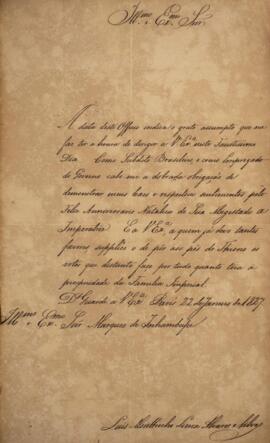 Illmo. e Exmo. Snr.
A data deste Officio indica o grato assumpto que me
faz ter a honra de dirigir a V. Exa. neste Faustissimo
Dia. Como Subdito Brasileiro, e como Empregado
do Governo cabe-me a dobrada obrigação de
demonstrar meus leaes e respeitosos sentimentos pelo
Feliz Anniversario Natalicio de Sua Magestade a
Imperatriz. E a V. Exa. a quem já devo tantos
favores supplico o de pôr aos pés do Throno os
votos que distante faço por tudo quanto toca à
prosperidade da Familia Imperial.
Ds. Guarde a V. Exa. Paris 22 de Janeiro de 1827.
Illmo. e Exmo. Snr. Marques de Inhambupe
Luis Moutinho Lima Alvares e Silva